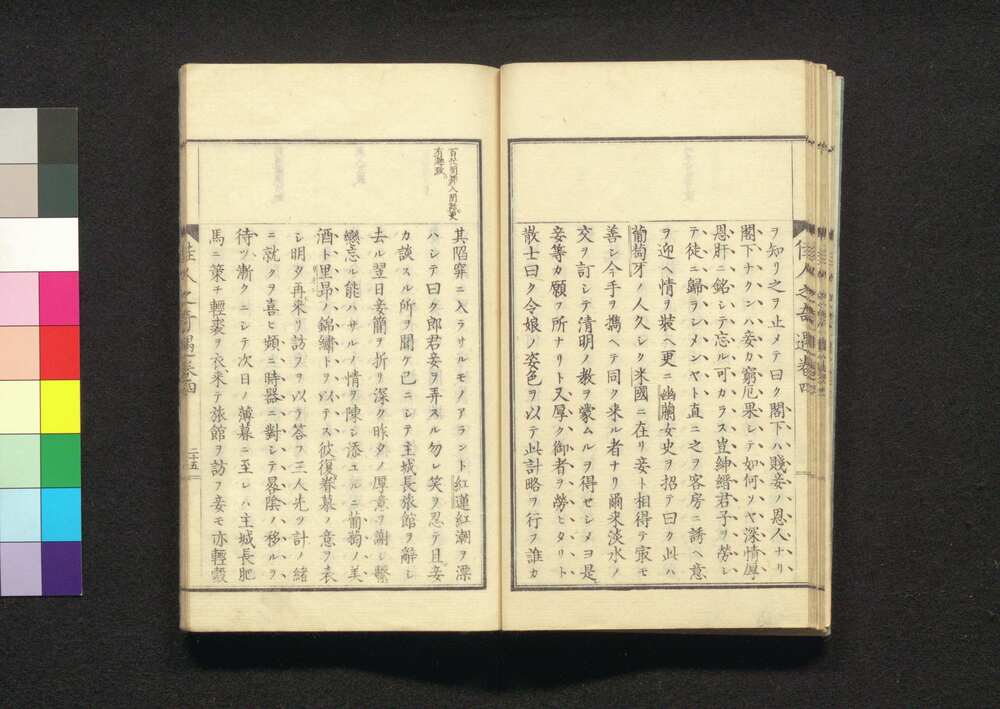 佳人之奇遇卷四
ヲ知リ之ヲ止メテ曰ク閣下ハ賤妾ノ恩人ナリ
閣下ナクンハ妾カ窮厄果シテ如何ソヤ深情厚
恩肝ニ銘シテ忘ル可カラス豈紳縉君子ヲ勞シ
テ徒ニ歸ラシメンヤト直ニ之ヲ客房ニ誘ヘ意
ヲ迎ヘ情ヲ裝ヘ更ニ幽蘭女史ヲ招テ曰ク此ハ
葡萄牙ノ人久シク米國ニ在リ妾ト相得テ㝡モ
善シ今手ヲ攜ヘテ同ク来ル者ナリ爾来淡水ノ
交ヲ訂シテ清明ノ教ヲ蒙ムルヲ得セシメヨ是
妾等カ願フ所ナリト又厚ク御者ヲ勞ヒタリト
散士曰ク令娘ノ姿色ヲ以テ此計略ヲ行フ誰カ
百代
有趣致
其陷穽ニ入ラサルモノアラント紅蓮紅潮ヲ漂
ハシテ曰ク郎君妾ヲ弄スル勿レ笑ヲ忍テ且妾
カ談スル所ヲ聞ケ已ニシテ主城長旅館ヲ辭シ
去ル翌日妾簡ヲ折リ深ク昨夕ノ厚意ヲ謝シ繫
戀忘ル能ハサルノ情ヲ陳シ添ユルニ葡萄ノ美
酒ト里昴ノ錦繡トヲ以テス彼復眷慕ノ意ヲ表
シ明夕再來リ訪フヲ以テ答フ三人先ツ計ノ緒
ニ就クヲ喜ヒ頻ニ時器ニ對シテ晷陰ノ移ルヲ
待ツ漸クニシテ次日ノ薄暮ニ至レハ主城長肥
馬ニ策チ輕裘ヲ衣来テ旅館ヲ訪フ妾モ亦輕縠
佳人之奇遇卷四
二十五